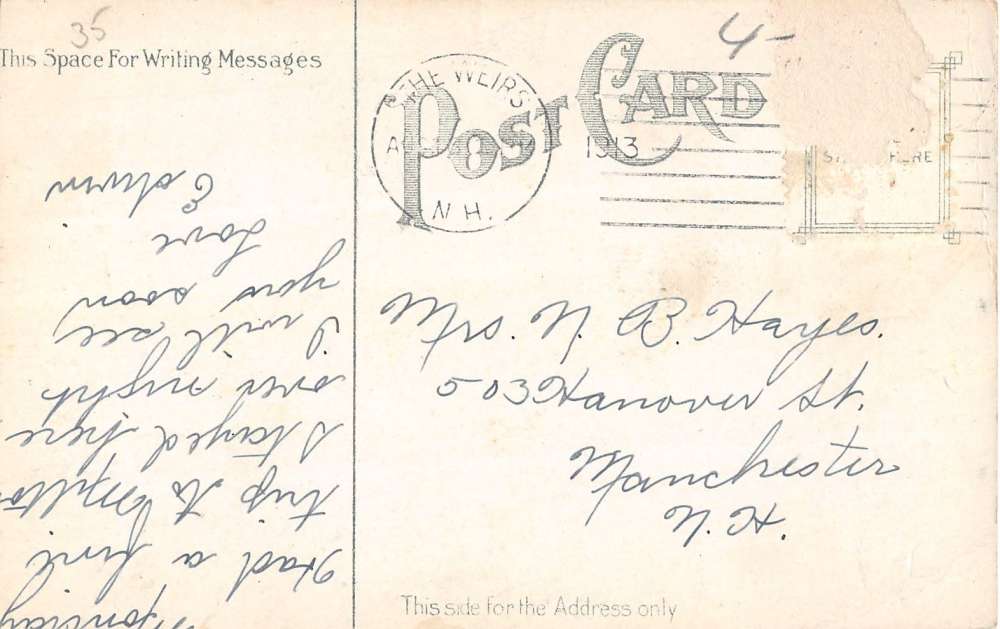 35
This Space For Writing Messages
4-
POST CARD
THE WEIRS
1913
N.H.
HERE
Mrs. N. B. Hayes.
503 Hanover St.
Manchester
N.H.
This side for the Address only
Monday
Had a fine
trip to Milto
stayed here
over night
I will see
you soon
Love
Edwin